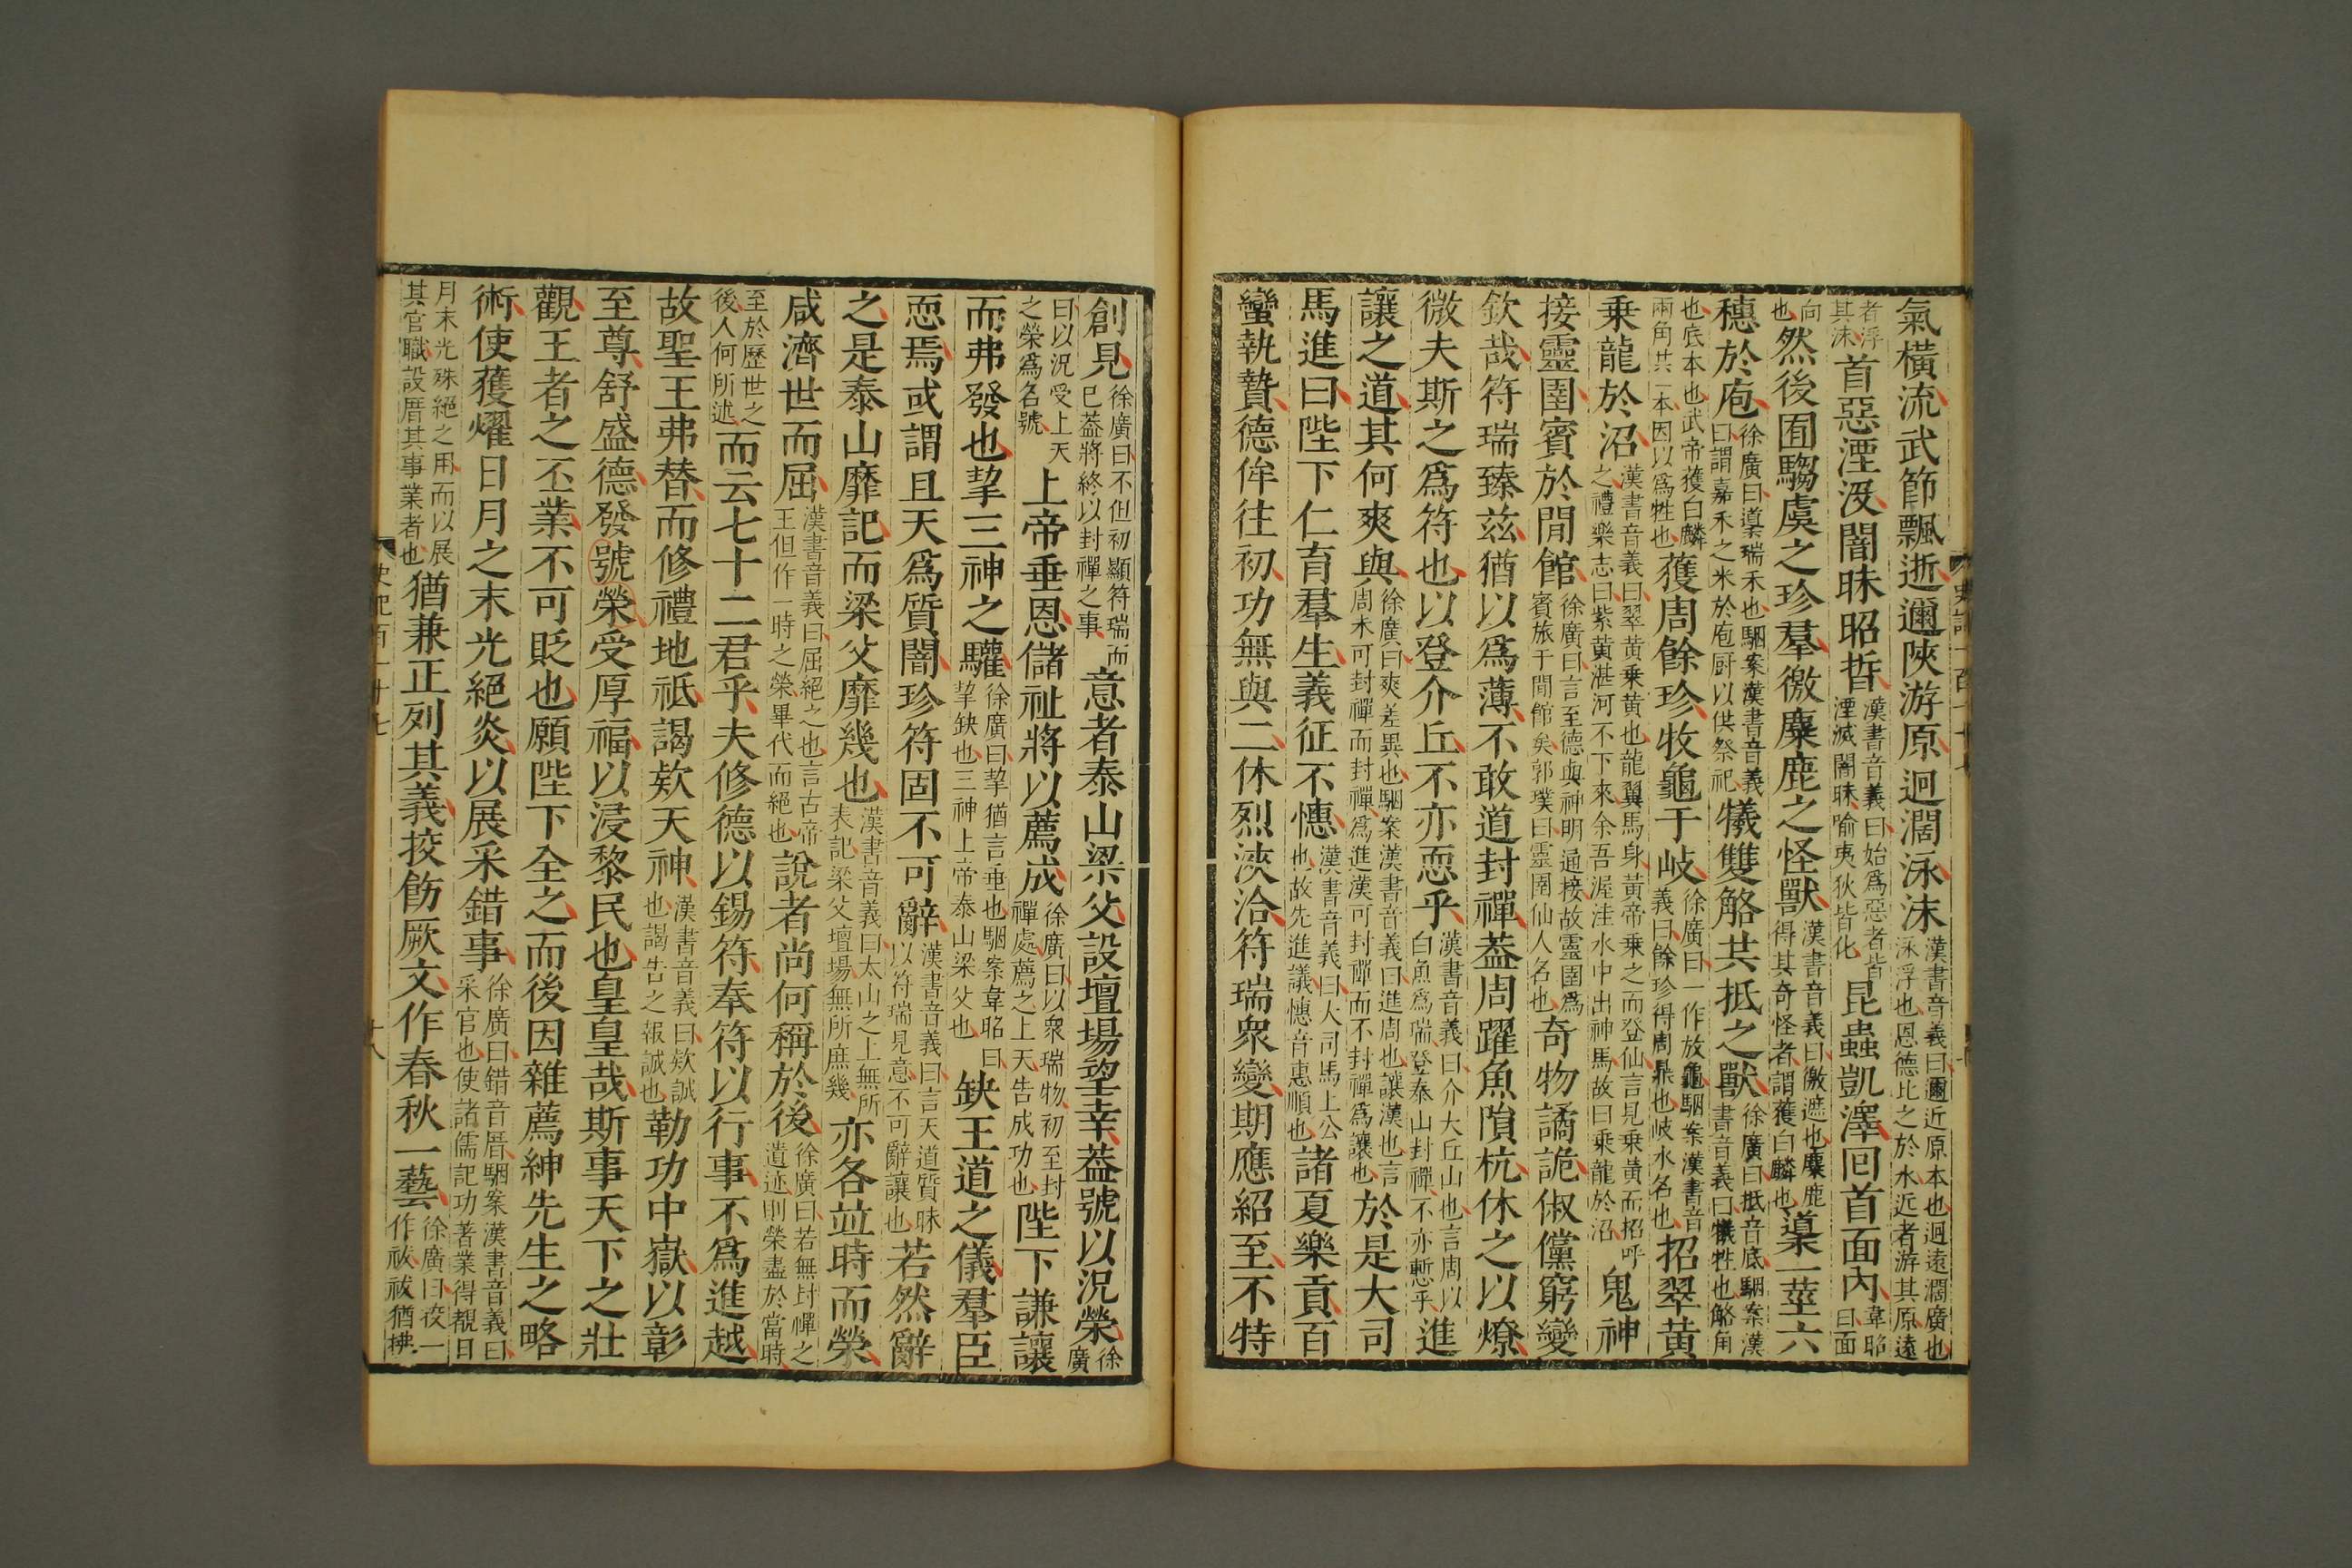 氣橫流武節飄逝邇陜游原迥濶泳沫漢書音義曰邇近原本也迥遠濶廣也泳浮也恩德比之於水近者游其原遠
者浮其沫首惡湮沒闇昧昭晢漢書音義曰始爲惡者皆湮滅闇昧喻夷狄皆化昆蟲凱澤回首面內韋昭曰面
向也然後囿騶虞之珍羣徼麋鹿之怪獸漢書音義曰徼遮也麋鹿得其奇怪者謂獲白麟也導一莖六
穗於庖徐廣曰導瑞禾也駰案漢書音義曰謂嘉禾之米於庖厨以供祭祀犧雙觡共抵之獸徐廣曰抵音底駰案漢書音義曰犧牲也觡角
也底本也武帝獲白麟兩角共一本因以爲牲也獲周餘珍收龜于岐徐廣曰一作放龜駰案漢書音義曰餘珍得周鼎也岐水名也招翠黃
乘龍於沼漢書音義曰翠黃乘黃也龍翼馬身黃帝乘之而登仙言見乘黃而招呼之禮樂志曰紫黃湛河不下來余吾渥洼水中出神馬故曰乘龍於沼鬼神
接靈圉賓於閒館徐廣曰言至德與神明通接故靈圉爲賓旅于閒館矣郭璞曰靈圉仙人名也奇物譎詭俶儻窮變
欽哉符瑞臻茲猶以爲薄不敢道封禪葢周躍魚隕杭休之以燎
微夫斯之爲符也以登介丘不亦恧乎漢書音義曰介大丘山也言周以白魚爲瑞登泰山封禪不亦慙乎進
讓之道其何爽與徐廣曰爽差異也駰案漢書音義曰進周也讓漢也言周未可封禪而封禪爲進漢可封禪而不封禪爲讓也於是大司
馬進曰陛下仁育羣生義征不憓漢書音義曰大司馬上公也故先進議憓音惠順也諸夏樂貢百
蠻執贄德侔往初功無與二休烈浹洽符瑞衆變期應紹至不特
創見徐廣曰不但初顯符瑞而已葢將終以封禪之事意者泰山梁父設壇場望幸葢號以況榮徐廣
曰以況受上天之榮爲名號上帝垂恩儲祉將以薦成徐廣曰以衆瑞物初至封禪處薦之上天告成功也陛下謙讓
而弗發也挈三神之驩徐廣曰挈猶言垂也駰案韋昭曰挈缺也三神上帝泰山梁父也缺王道之儀羣臣
恧焉或謂且天爲質闇珍符固不可辭漢書音義曰言天道質昧以符瑞見意不可辭讓也若然辭
之是泰山靡記而梁父靡幾也漢書音義曰太山之上無所表記梁父壇場無所庶幾亦各竝時而榮
咸濟世而屈漢書音義曰屈絕之也言古帝王但作一時之榮畢代而絕也說者尚何稱於後徐廣曰若無封禪之遺迹則榮盡於當時
至於歷世之後人何所述而云七十二君乎夫修德以錫符奉符以行事不爲進越
故聖王弗替而修禮地祇謁欵天神漢書音義曰欵誠也謁告之報誠也勒功中嶽以彰
至尊舒盛德發號榮受厚福以浸黎民也皇皇哉斯事天下之壯
觀王者之丕業不可貶也願陛下全之而後因雜薦紳先生之略
術使獲燿日月之末光絕炎以展采錯事徐廣曰錯音厝駰案漢書音義曰采官也使諸儒記功著業得覩日
月末光殊絕之用而以展其官職設厝其事業者也猶兼正列其義挍飭厥文作春秋一藝徐廣曰挍一作祓祓猶拂